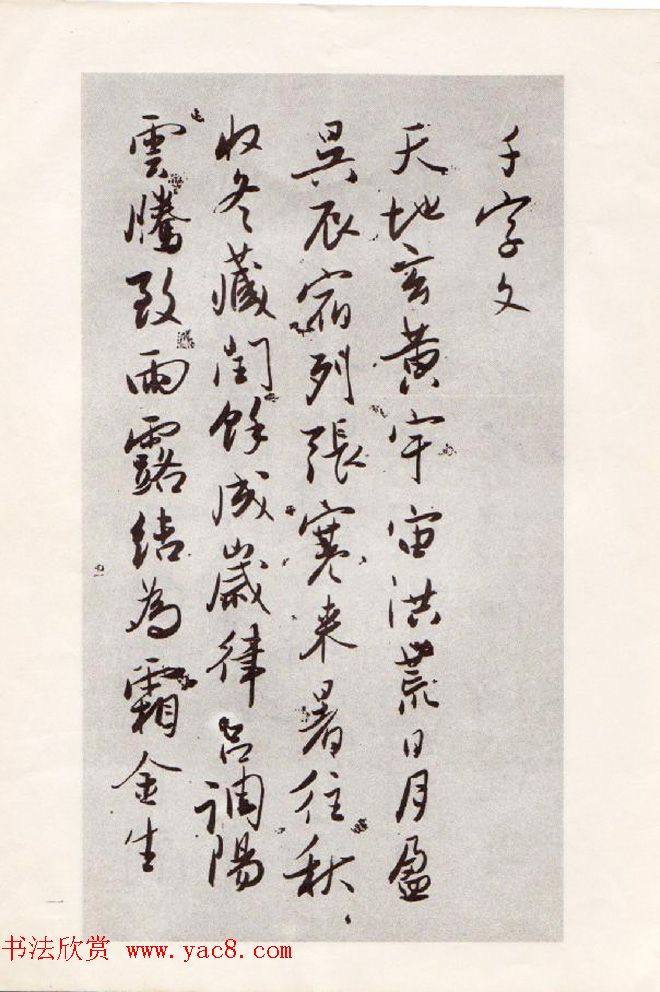 千字文
天地玄黄宇宙洪荒日月盈
昃辰宿列張寒来暑往秋
收冬藏閏餘成歲律呂調陽
雲騰致雨露結為霜金生
书法欣赏 www.yac8.com